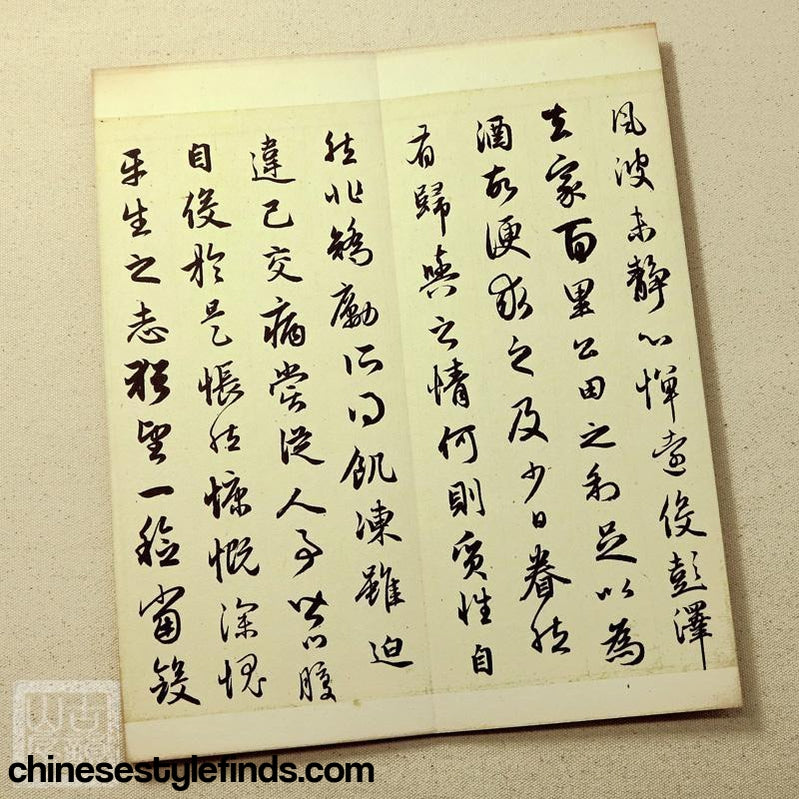 風波未靜心憚遠役彭澤
去家百里公田之利足以為
酒故便求之及少日眷然
有歸與之情何則質性自
然非矯勵所得飢凍雖迫
違己交病嘗從人事皆口腹
自役於是悵然慷慨深愧
平生之志猶望一稔當斂
chinesestylefinds.com